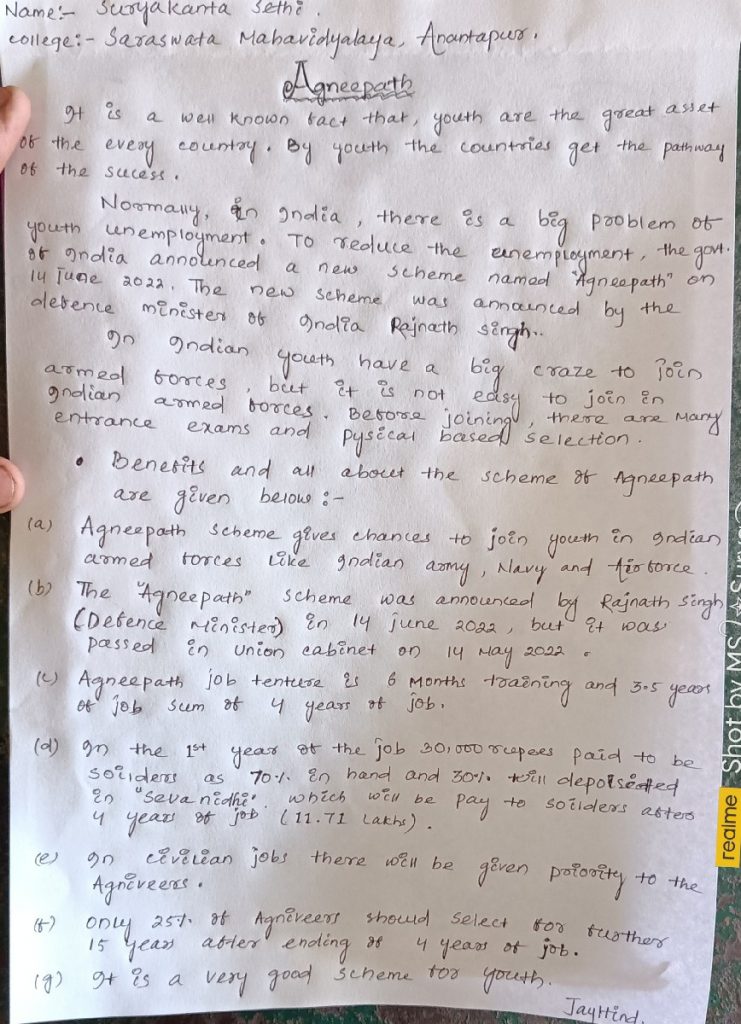 Name:- Suryakanta Sethi.
college:- Saraswata Mahavidyalaya, Anantapur.
Agneepath
It is a well known fact that, youth are the great asset
of the every country. By youth the countries get the pathway
of the sucess.
Normally, in India, there is a big problem of
youth unemployment. To reduce the unemployment, the govt.
of India announced a new scheme named "Agneepath" on
14 June 2022. The new scheme was announced by the
defence minister of India Rajnath Singh..
In Indian youth have a big craze to join
armed forces, but it is not easy to join in
Indian armed forces. Before joining, there are many
entrance exams and pysical based selection.
• Benefits and all about the scheme of Agneepath
are given below :-
(a) Agneepath scheme gives chances to join youth in Indian
armed forces like Indian army, Navy and Airforce.
(b) The "Agneepath" scheme was announced by Rajnath Singh
(Defence Minister) in 14 june 2022, but it was
passed in Union cabinet on 14 May 2022.
(c) Agneepath job tenture is 6 Months training and 3.5 years
of job sum of 4 years of job.
(d) In the 1st year of the job 30,000 rupees paid to be
soilders as 70% in hand and 30% will depoisited
in "Seva nidhi". which will be pay to soilders after
4 years of job (11.71 Lakhs).
(e) In civilian jobs there will be given priority to the
Agniveers.
(f) Only 25% of Agniveers should select for further
15 years after ending of 4 years of job.
(g) It is a very good scheme for youth.
JayHind.
realme Shot by MS